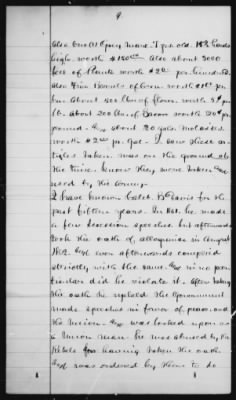 9
Also one (1) Grey Mare - 7 yrs old. 15½ hands
high, worth $150.00 Also about 3000
feet of Plank worth $2 per hundred
Also Five Barrels of Corn worth $1 per
bu. About 500 lbs of flour worth 5¢ per
lb. About 200 lbs of Bacon worth 20¢ per
pound. And about 20 gals. Molasses
worth $2.00 pr. gal - I saw these ar-
ticles taken. was on the ground at
the time. know they were taken and
used by the Army.
I have known Calet. B. Davis for the
past fifteen years. In 1861. he made
a few secession speeches but afterwards
took the oath of allegiance in August
1862. And ever afterwards complied
strictly with the same. And in no par-
ticular did he violate it. After taking
the oath he upheld the Government
made speeches in favor of peace and
the Union. And was looked upon as
a Union man. he was abused by the
Rebels for having taken the oath
And was ordered by them to do